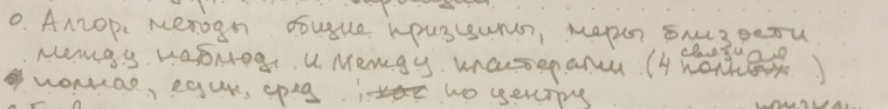 о. Алгор. методы общие принципы, меры близости
между наблюд. и между кластерами (4 связи для)
полная, един., сред; по центру